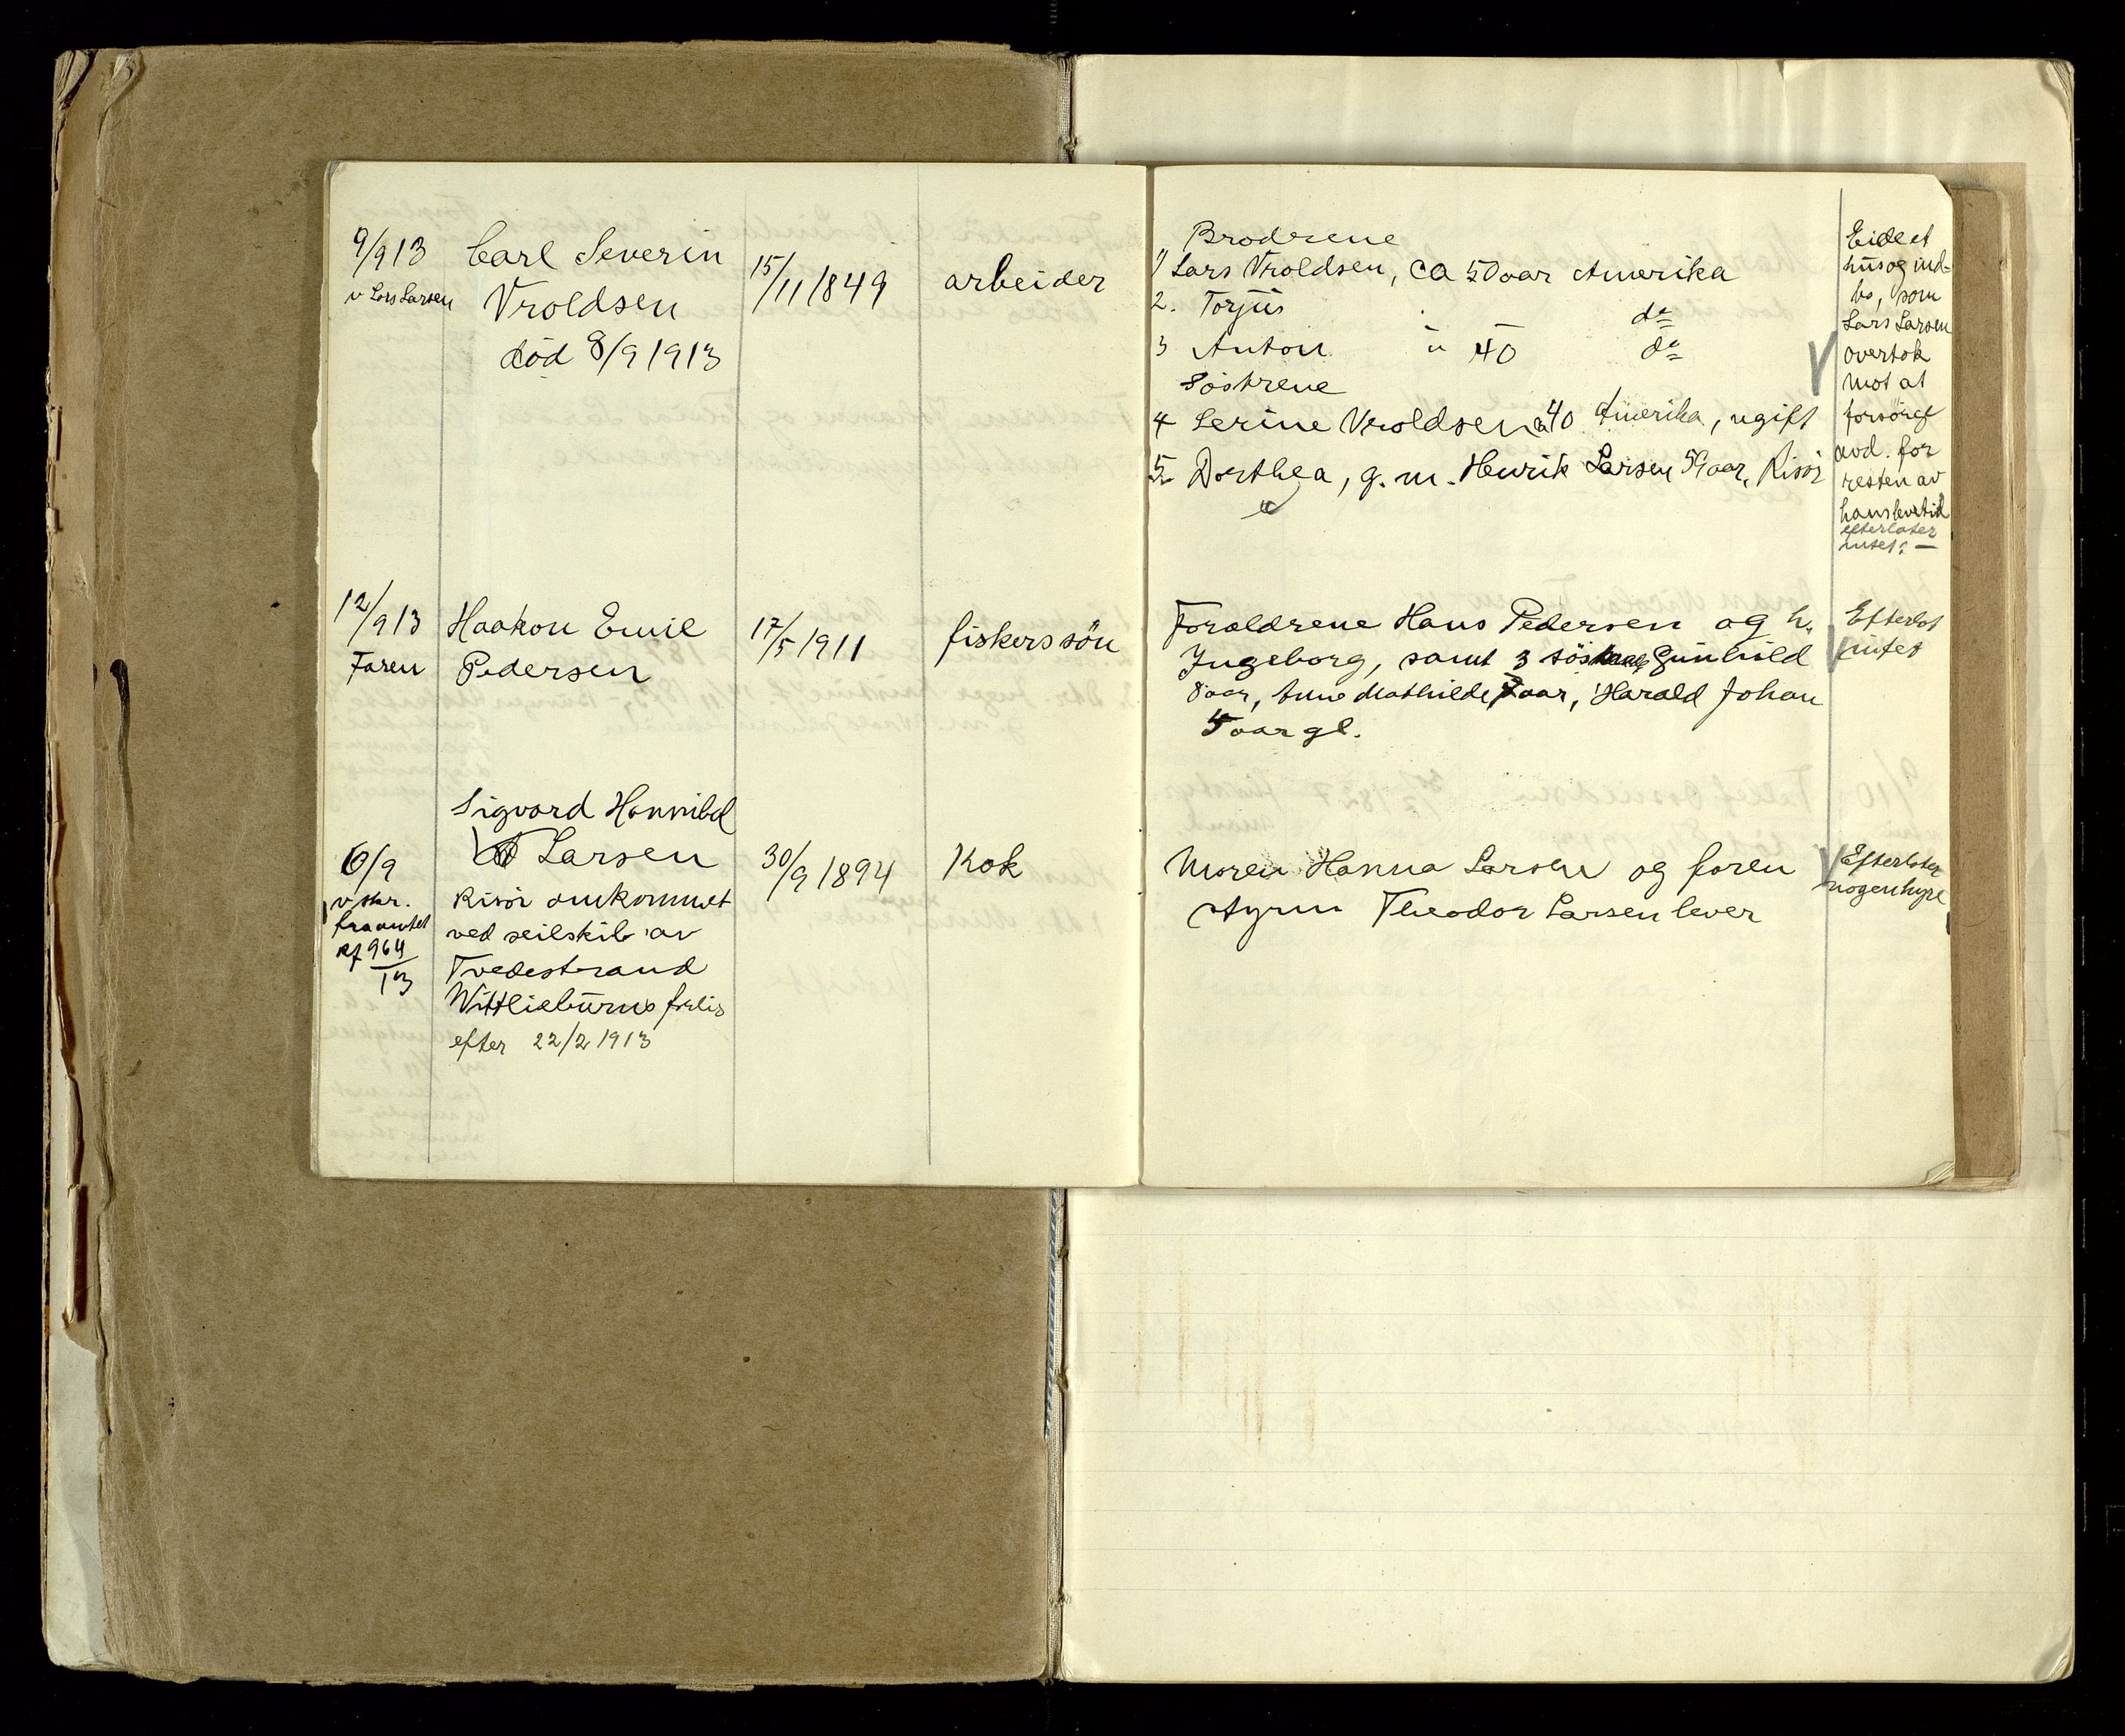 9/9 13
v Lars Larsen
Carl Severin
Vroldsen
död 8/9 1913
15/11 1849
arbeider
Brödrene
1) Lars Vroldsen, ca 50 aar Amerika
2. Torjus do
3 Anton " 40 do
Söstrene
4 Serine Vroldsen 40 Amerika, ugift
5 Dorthea, g. m. Henrik Larsen 59 aar, Risör
Eide et
hus og ind-
bo, som
Lars Larsen
overtok
mot at
forsörge
avd. for
resten av
hans levetid
efterlater
intet? —
12/9 13
Faren
Haakon Emil
Pedersen
17/5 1911
fiskers sön
Foraldrene Hans Pedersen og h.
Ingeborg, samt 3 Gunhild
8 aar, Anne Mathilde 7 aar, Harald Johan
aar gl.
Efterlot
intet
6/9
v skr.
fra amtet
964
13
Sigvard Hannibal
Larsen
Risör omkommet
ved seilskib av
Tvedestrand
forlis
efter 22/2 1913
30/9 1894
Kok
Moren Hanna Larsen og faren
styrm Theodor Larsen lever
Efterlater
nogen hyre